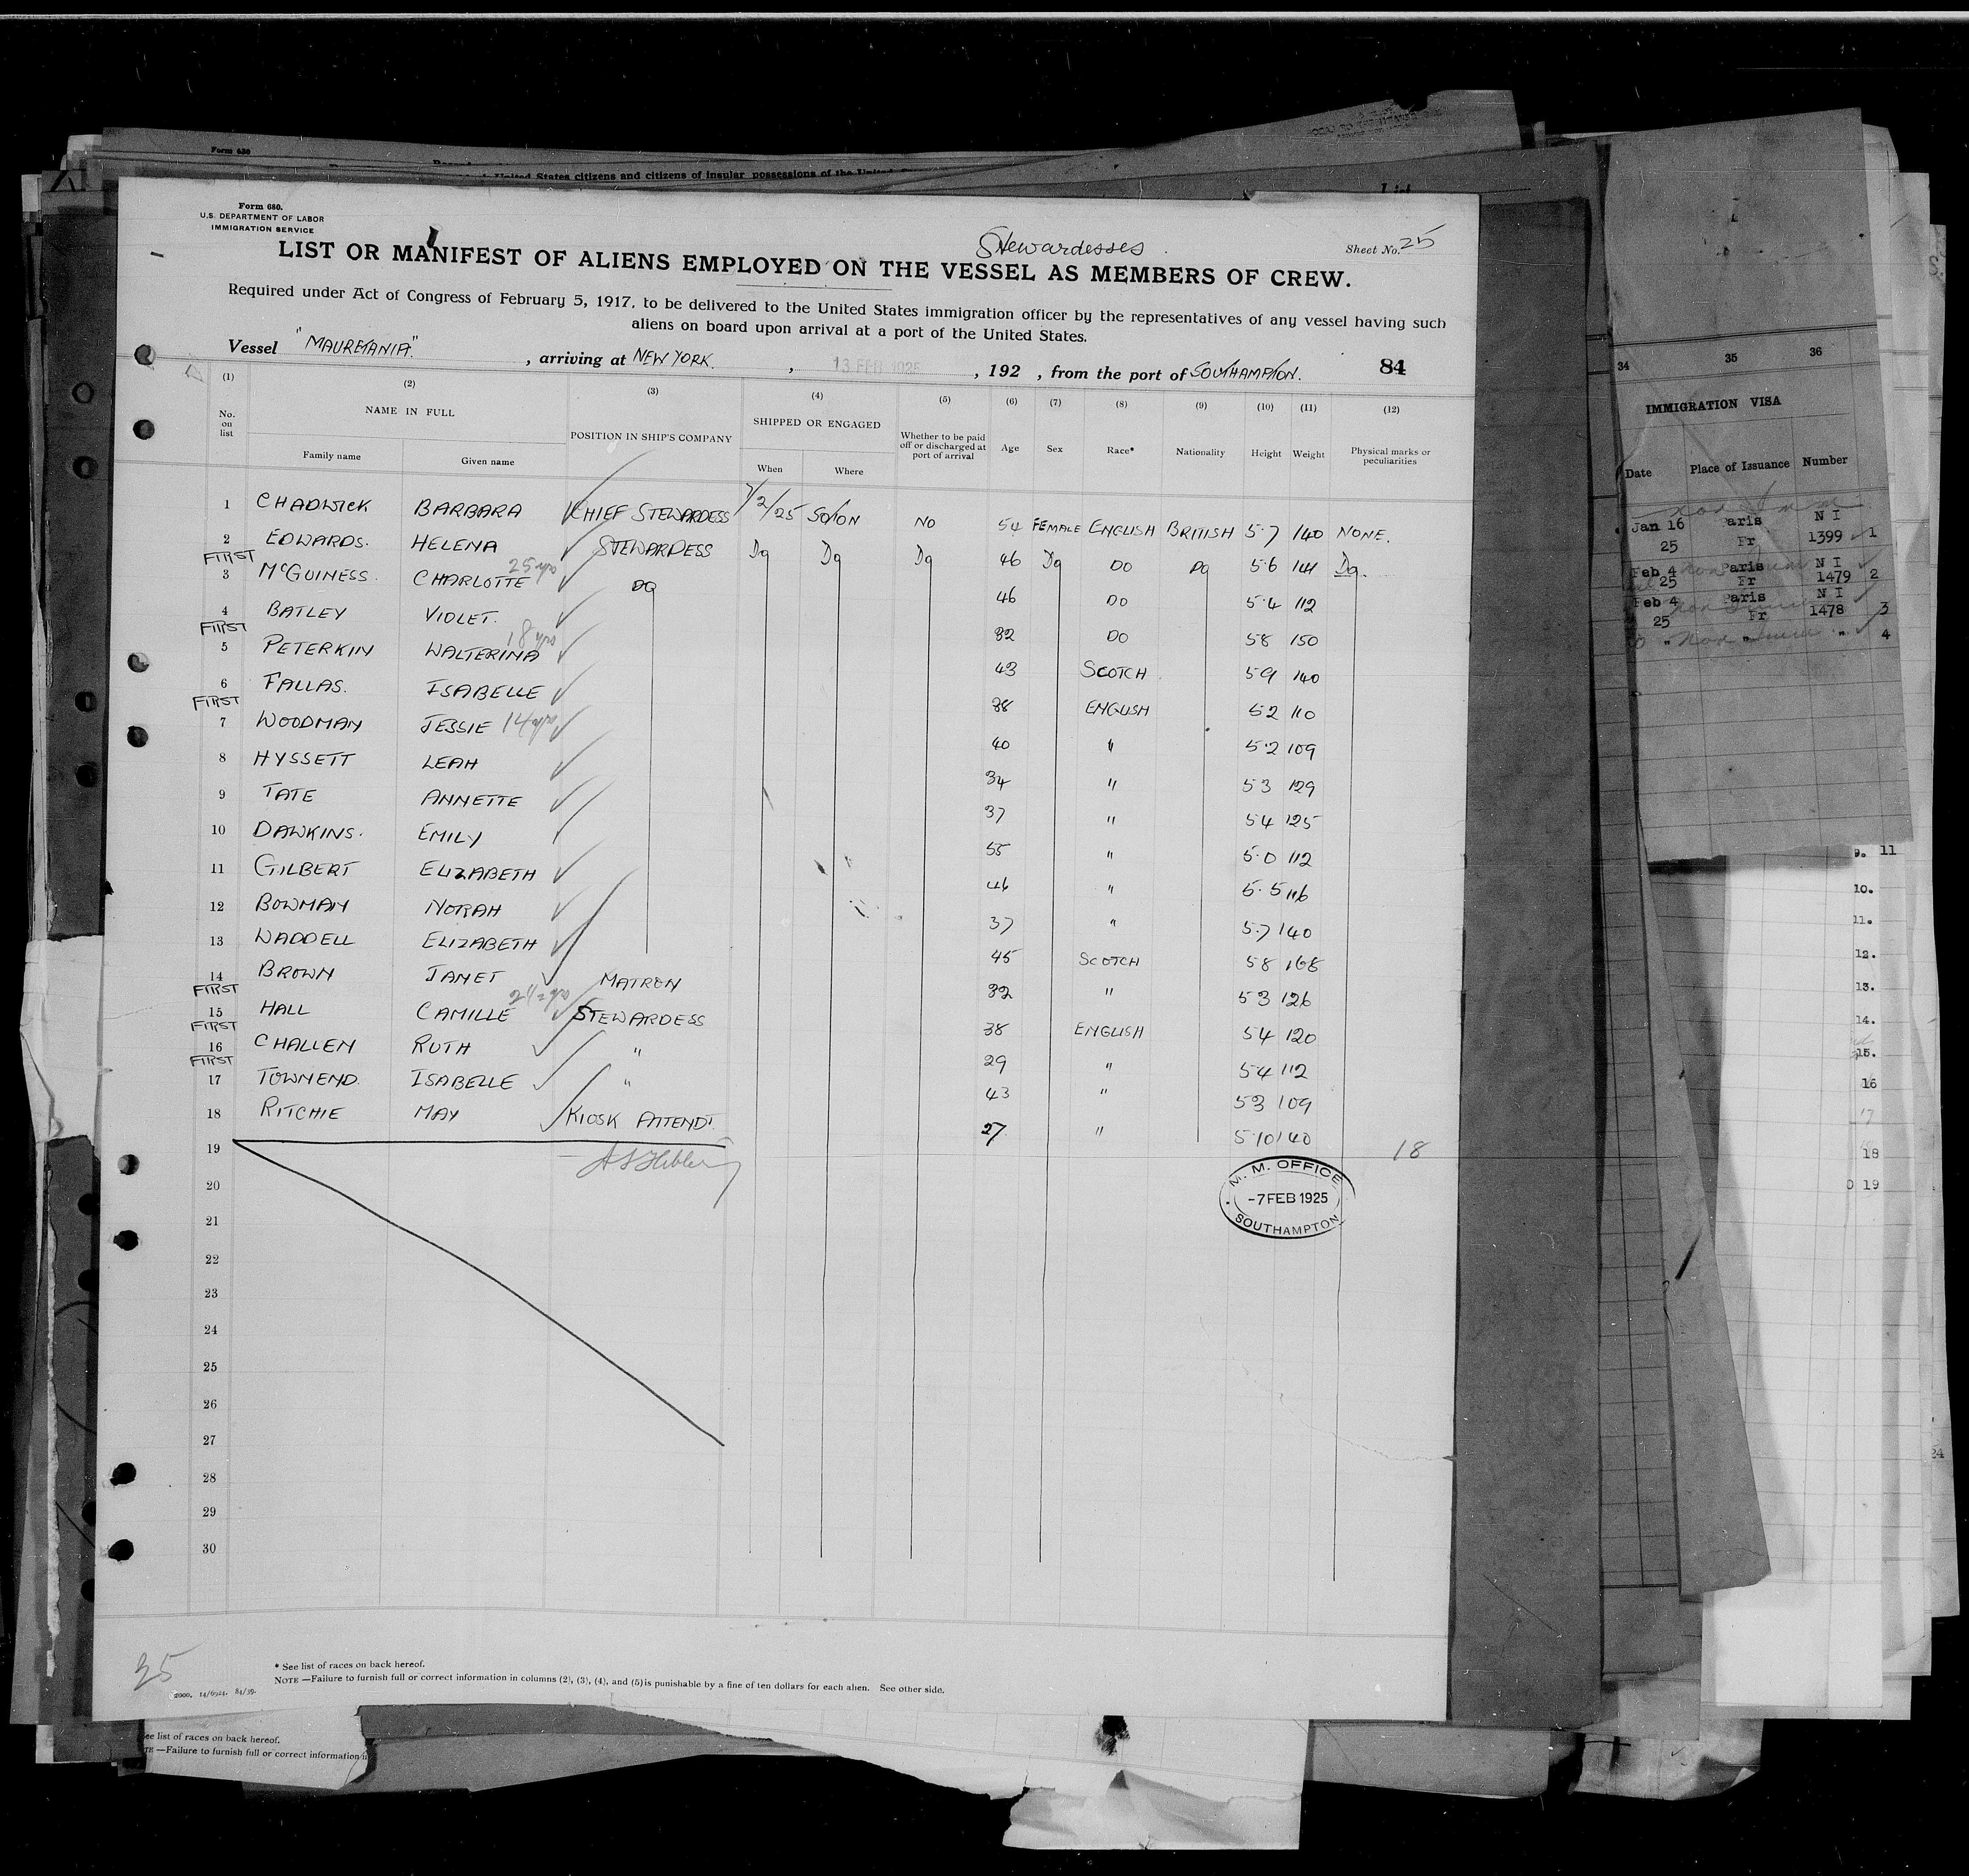 Form 680
United States citizens and citizens of insular possessions of the United
Form 680.
U.S. DEPARTMENT OF LABOR
IMMIGRATION SERVICE
Stewardesses
Sheet No. 25
LIST OR MANIFEST OF ALIENS EMPLOYED ON THE VESSEL AS MEMBERS OF CREW.
Required under Act of Congress of February 5, 1917, to be delivered to the United States immigration officer by the representatives of any vessel having such
aliens on board upon arrival at a port of the United States.
Vessel "MAURETANIA", arriving at NEW YORK., 13 FEB 1925, 192 , from the port of SOUTHAMPTON. 84
(1) (2) (3) (4) (5) (6) (7) (8) (9) (10) (11) (12)
No. on list NAME IN FULL POSITION IN SHIP'S COMPANY SHIPPED OR ENGAGED Whether to be paid off or discharged at port of arrival Age Sex Race* Nationality Height Weight Physical marks or peculiarities
Family name Given name When Where
1 CHADWICK BARBARA CHIEF STEWARDESS 7/2/25 SO/TON NO 54 FEMALE ENGLISH BRITISH 5·7 140 NONE.
2 EDWARDS. HELENA STEWARDESS Do Do Do 46 Do DO DO 5·6 141 Do.
FIRST 25 yrs
3 McGUINESS. CHARLOTTE DO 46 DO 5·4 112
4 BATLEY VIOLET. 32 DO 5 8 150
FIRST 18 yrs
5 PETERKIN WALTERINA 43 SCOTCH 5 9 140
6 FALLAS. ISABELLE 38 ENGLISH 5 2 110
FIRST
7 WOODMAN JESSIE 14 yrs 40 " 5·2 109
8 HYSSETT LEAH 34 " 5 3 129
9 TATE ANNETTE 37 " 5 4 125
10 DAWKINS. EMILY 55 " 5·0 112
11 GILBERT ELIZABETH 46 " 5·5 116
12 BOWMAN NORAH 37 " 5·7 140
13 WADDELL ELIZABETH 45 SCOTCH 5 8 168
14 BROWN JANET MATRON 32 " 5 3 126
FIRST
15 HALL CAMILLE STEWARDESS 38 ENGLISH 5 4 120
FIRST
16 CHALLEN RUTH " 29 " 5 4 112
FIRST
17 TOWNEND. ISABELLE " 43 " 5 3 109
18 RITCHIE MAY KIOSK ATTENDT. 27 " 5 10 140
19 18
20
21
22
23
24
25
26
27
28
29
30
M. M. OFFICE
-7 FEB 1925
SOUTHAMPTON
25
* See list of races on back hereof.
NOTE —Failure to furnish full or correct information in columns (2), (3), (4), and (5) is punishable by a fine of ten dollars for each alien. See other side.
2000. 14/6924. 84/39.
ee list of races on back hereof.
TE —Failure to furnish full or correct information
34 35 36
IMMIGRATION VISA
Date Place of Issuance Number
Jan 16 Paris N I
25 Fr 1399 1
Feb 4 Paris N I
25 Fr 1479 2
Feb 4 Paris N I
25 Fr 1478 3
" " 4
9. 11
10.
11.
12.
13.
14.
15.
16
17
18
0 19
24